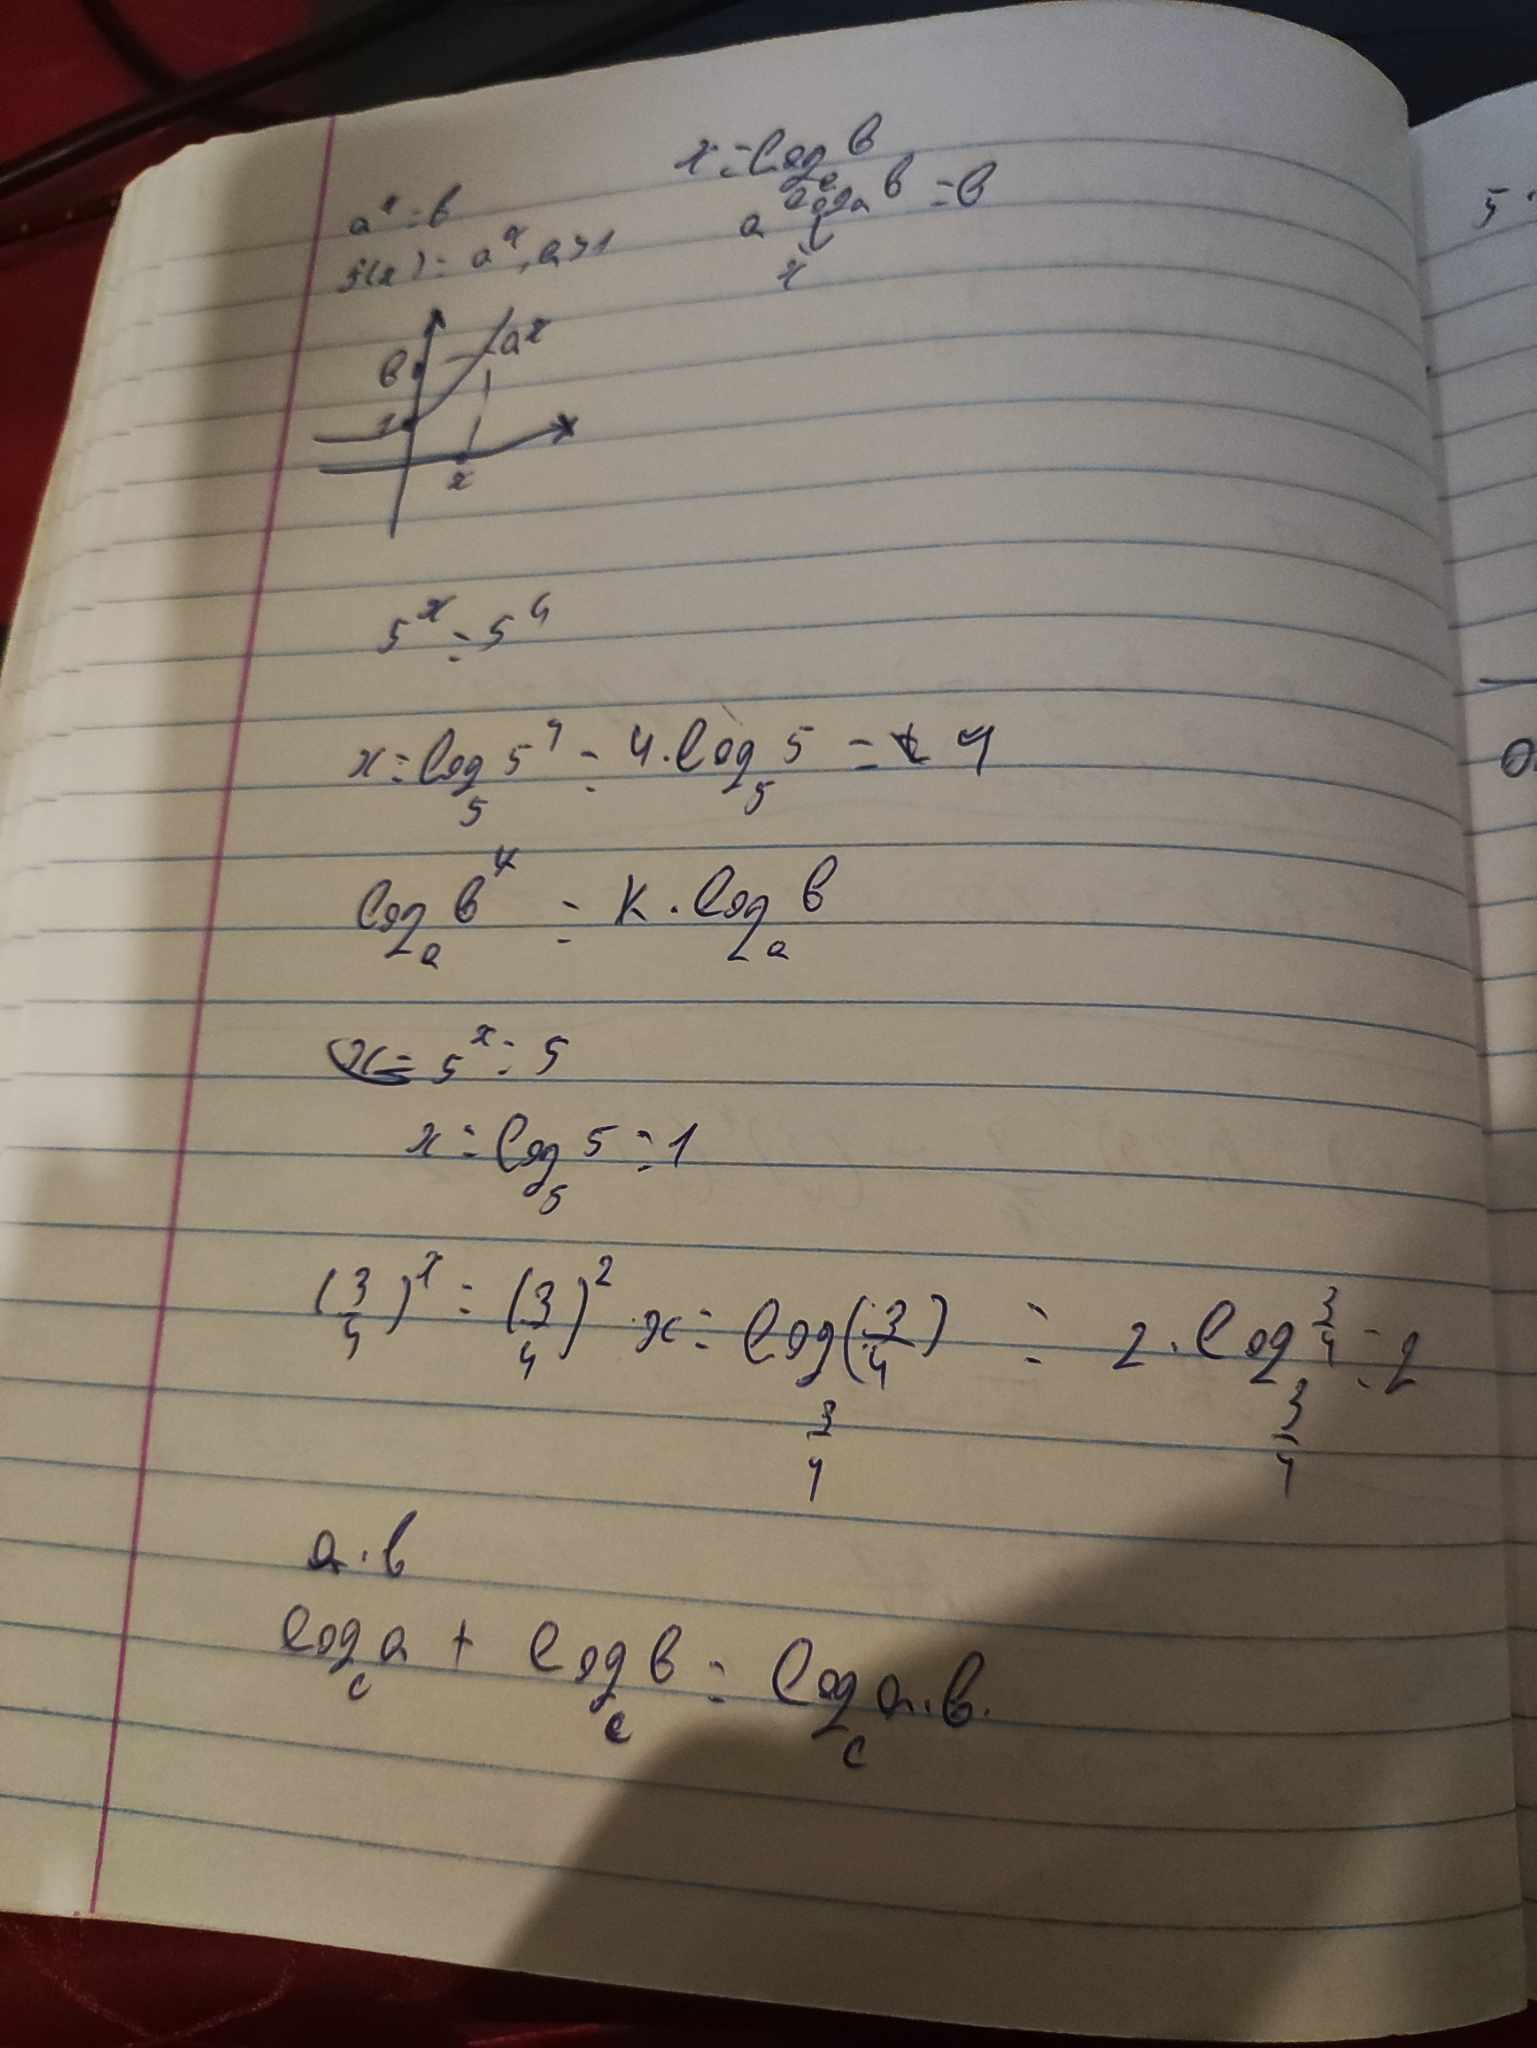 x = log_a b
a^x = b
a^(log_a b) = b
f(x) = a^x, a > 1
x
a^x
b
1
x
5^x = 5^4
x = log_5 5^4 = 4 · log_5 5 = 4
log_a b^k = k · log_a b
5^x = 5
x = log_5 5 = 1
(3/4)^x = (3/4)^2 x = log_(3/4) (3/4) = 2 · log_(3/4) 3/4 = 2
a · b
log_c a + log_c b = log_c a · b.